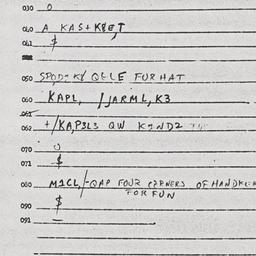 030 0
040 A KAS+K&E,T
041 $
050 QELE FUR HAT
060 KAPL, /JARML, K3
065
062 +/KA,P3L3 QW K3ND2
070 0
071 $
080 M1CL,/-QAP FOUR CORNERS OF HANDKER
FOR FUN
090 $
091 —